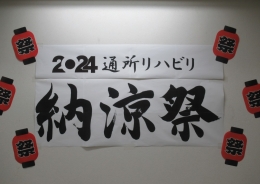 2024 通所リハビリ
納涼祭
祭
祭
祭
祭
祭
祭